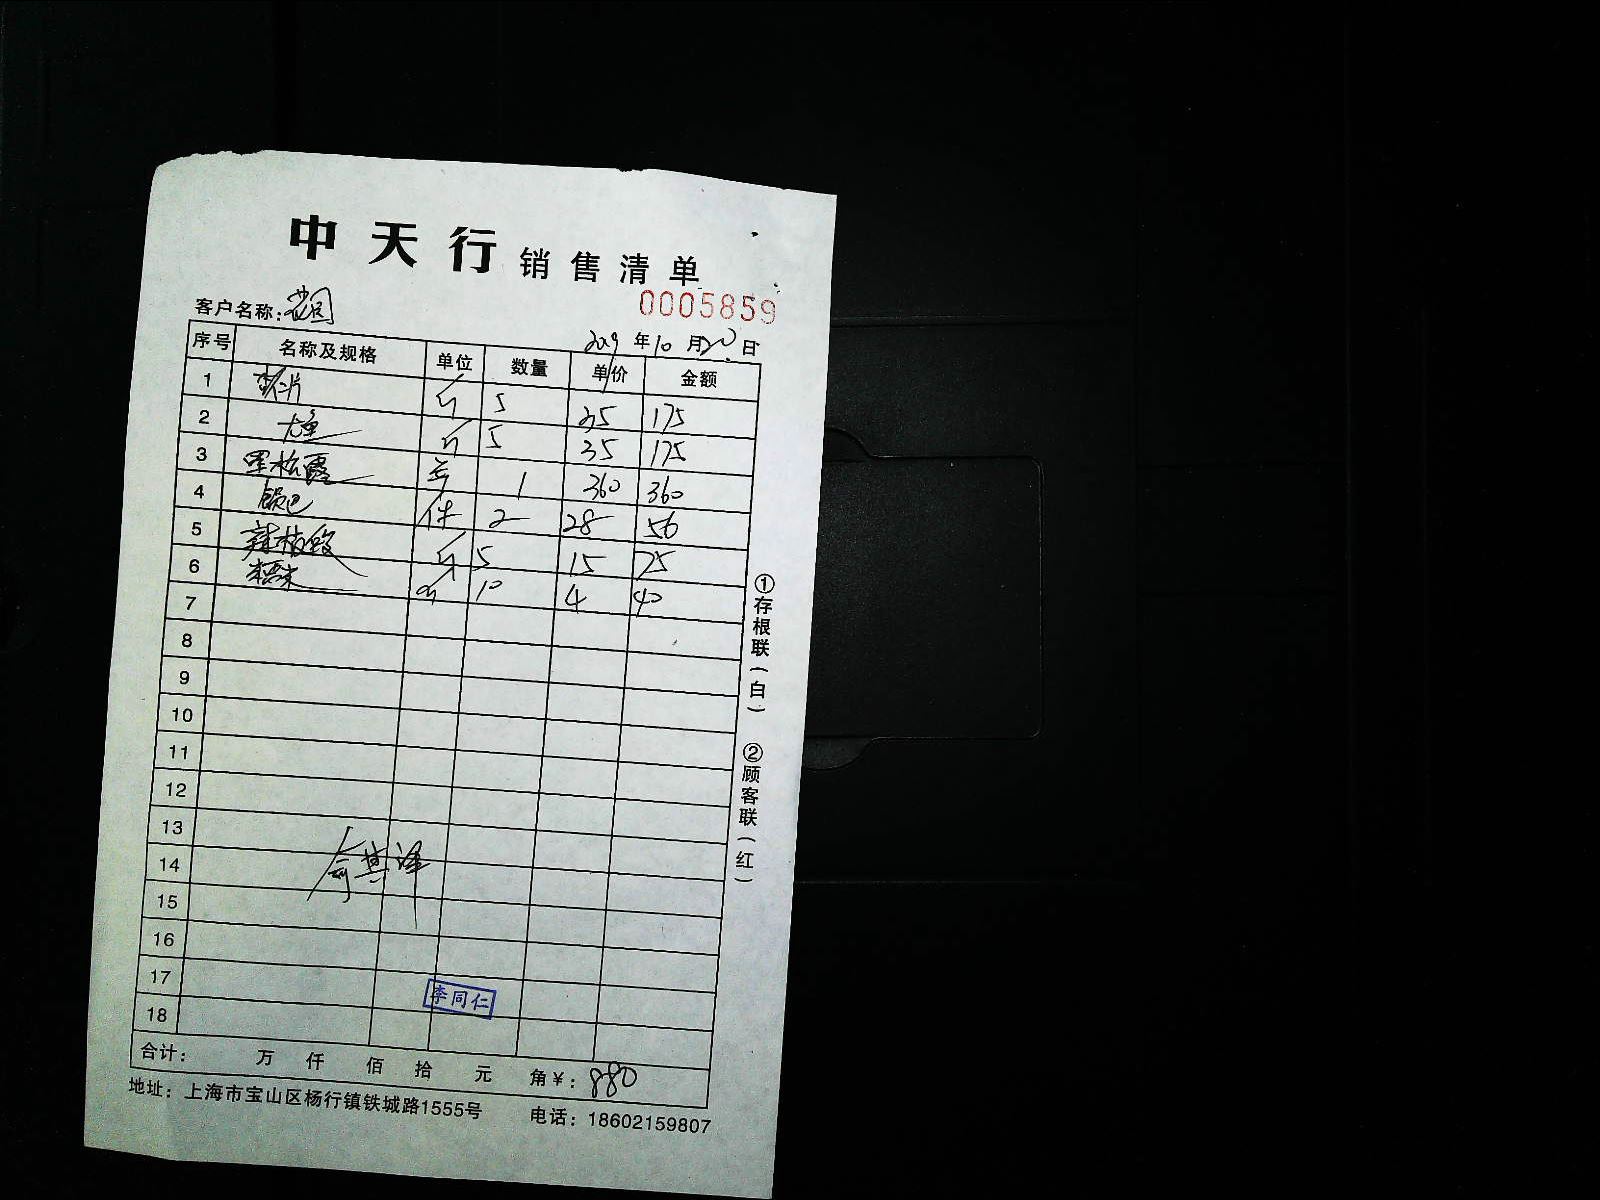 中天行 销售清单
0005859
客户名称:
2019 年 10 月 20 日
序号 名称及规格 单位 数量 单价 金额
1 斤 5 35 175
2 斤 5 35 175
3 黑松露 1 360 360
4 锅巴 件 2 28 56
5 斤 5 15 75
6 糯米 斤 10 4 40
7
8
9
10
11
12
13
14
15
16
17
李同仁
18
合计: 万 仟 佰 拾 元 角¥: 880
地址: 上海市宝山区杨行镇铁城路1555号 电话: 18602159807
①存根联(白)
②顾客联(红)